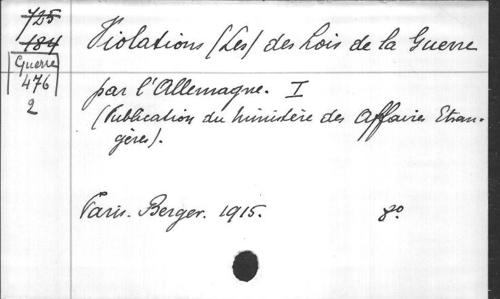 725
184
Guerre
476
2
Violations (Les) des Lois de la Guerre
par l'Allemagne. I
(Publication du Ministère des Affaires Etran-
gères).
Paris. Berger. 1915. 8°